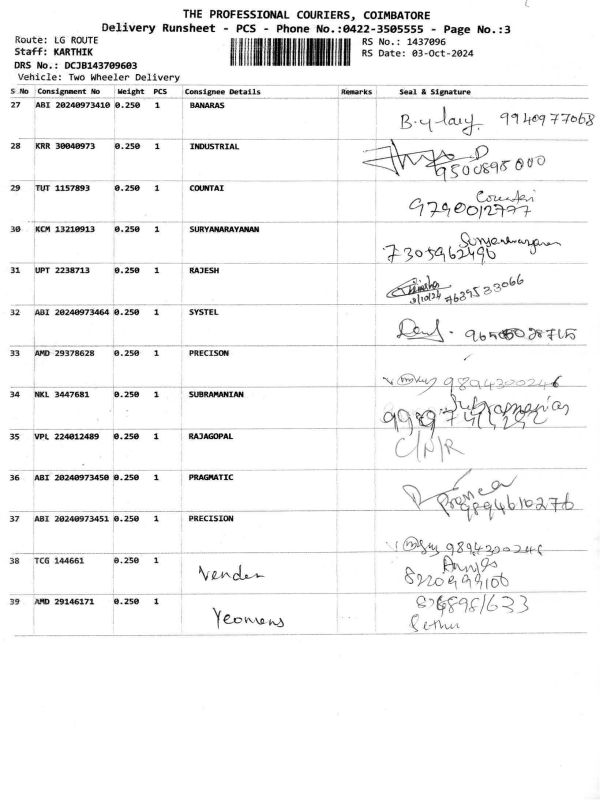 THE PROFESSIONAL COURIERS, COIMBATORE
Delivery Runsheet - PCS - Phone No.:0422-3505555 - Page No.:3
Route: LG ROUTE
RS No.: 1437096
Staff: KARTHIK
RS Date: 03-Oct-2024
DRS No.: DCJB143709603
Vehicle: Two Wheeler Delivery
S No Consignment No Weight PCS Consignee Details Remarks Seal & Signature
27 ABI 20240973410 0.250 1 BANARAS
9940977068
28 KRR 30040973 0.250 1 INDUSTRIAL
9500895000
29 TUT 1157893 0.250 1 COUNTAI
Countai
9790012777
30 KCM 13210913 0.250 1 SURYANARAYANAN
Suryanarayanan
7305962496
31 UPT 2238713 0.250 1 RAJESH
7639533066
32 ABI 20240973464 0.250 1 SYSTEL
33 AMD 29378628 0.250 1 PRECISON
9894300246
34 NKL 3447681 0.250 1 SUBRAMANIAN
35 VPL 224012489 0.250 1 RAJAGOPAL
C/N/R
36 ABI 20240973450 0.250 1 PRAGMATIC
9894610276
37 ABI 20240973451 0.250 1 PRECISION
9894300246
38 TCG 144661 0.250 1 Vender
8220999100
39 AMD 29146171 0.250 1 Yeomens
Sethu